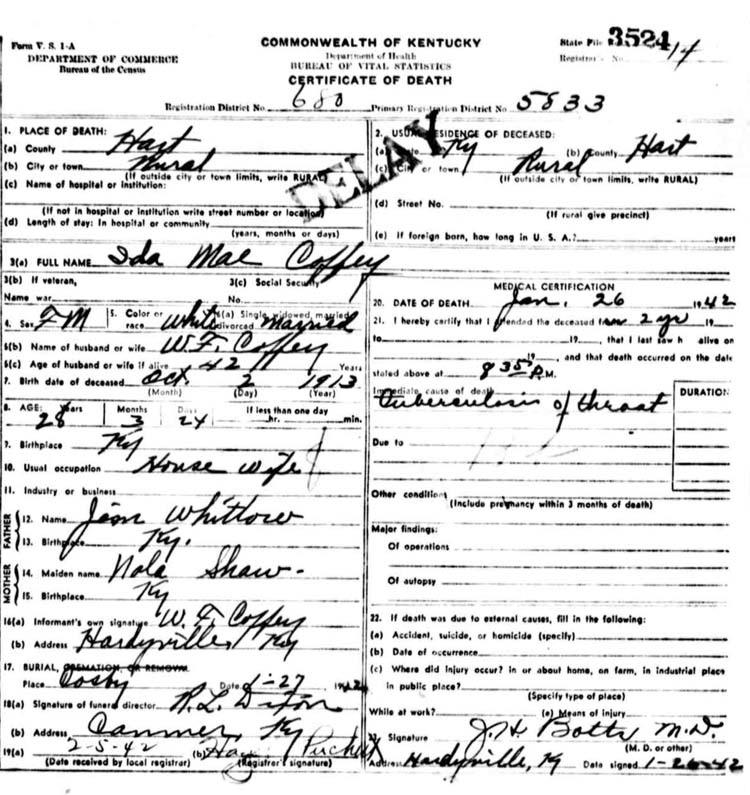 Form V. S. 1-A
DEPARTMENT OF COMMERCE
Bureau of the Census
COMMONWEALTH OF KENTUCKY
Department of Health
BUREAU OF VITAL STATISTICS
CERTIFICATE OF DEATH
State File No. 3524
Registrar's No. 14
Registration District No. 680 Primary Registration District No. 5833
DELAY
1. PLACE OF DEATH:
(a) County Hart
(b) City or town Rural
(If outside city or town limits, write RURAL)
(c) Name of hospital or institution:
(If not in hospital or institution write street number or location)
(d) Length of stay: In hospital or community
(years, months or days)
2. USUAL RESIDENCE OF DECEASED:
(a) State Ky (b) County Hart
(c) City or town Rural
(If outside city or town limits, write RURAL)
(d) Street No.
(If rural give precinct)
(e) If foreign born, how long in U. S. A.? years
3(a) FULL NAME Ida Mae Coffey
3(b) If veteran, 3(c) Social Security
Name war No.
4. Sex FM 5. Color or race White 6(a) Single, widowed, married, divorced Married
6(b) Name of husband or wife W. F. Coffey
6(c) Age of husband or wife if alive 42 Years
7. Birth date of deceased Oct. 2 1913
(Month) (Day) (Year)
8. AGE: Years 28 Months 3 Days 24 If less than one day
hr. min.
9. Birthplace Ky
10. Usual occupation House wife
11. Industry or business
FATHER
12. Name Jim Whitlow
13. Birthplace Ky.
MOTHER
14. Maiden name Nola Shaw
15. Birthplace Ky
16(a) Informant's own signature W. F. Coffey
(b) Address Hardyville, Ky
17. BURIAL, CREMATION, OR REMOVAL
Place Cosby Date 1-27 1942
18(a) Signature of funeral director R. L. Dixon
(b) Address Canmer, Ky
19(a) 2-5-42 (b)
(Date received by local registrar) (Registrar's signature)
MEDICAL CERTIFICATION
20. DATE OF DEATH Jan. 26 1942
21. I hereby certify that I attended the deceased from 2 yr 19
to 19 , that I last saw h alive on
19 , and that death occurred on the date
stated above at 8 35 P.M.
Immediate cause of death DURATION
Tuberculosis of throat
Due to
Other conditions
(Include pregnancy within 3 months of death)
Major findings:
Of operations
Of autopsy
22. If death was due to external causes, fill in the following:
(a) Accident, suicide, or homicide (specify)
(b) Date of occurrence
(c) Where did injury occur? in or about home, on farm, in industrial place
in public place?
(Specify type of place)
While at work? (e) Means of injury
23. Signature J. H. Botts M.D.
(M. D. or other)
Address Hardyville, Ky Date signed 1-26-42